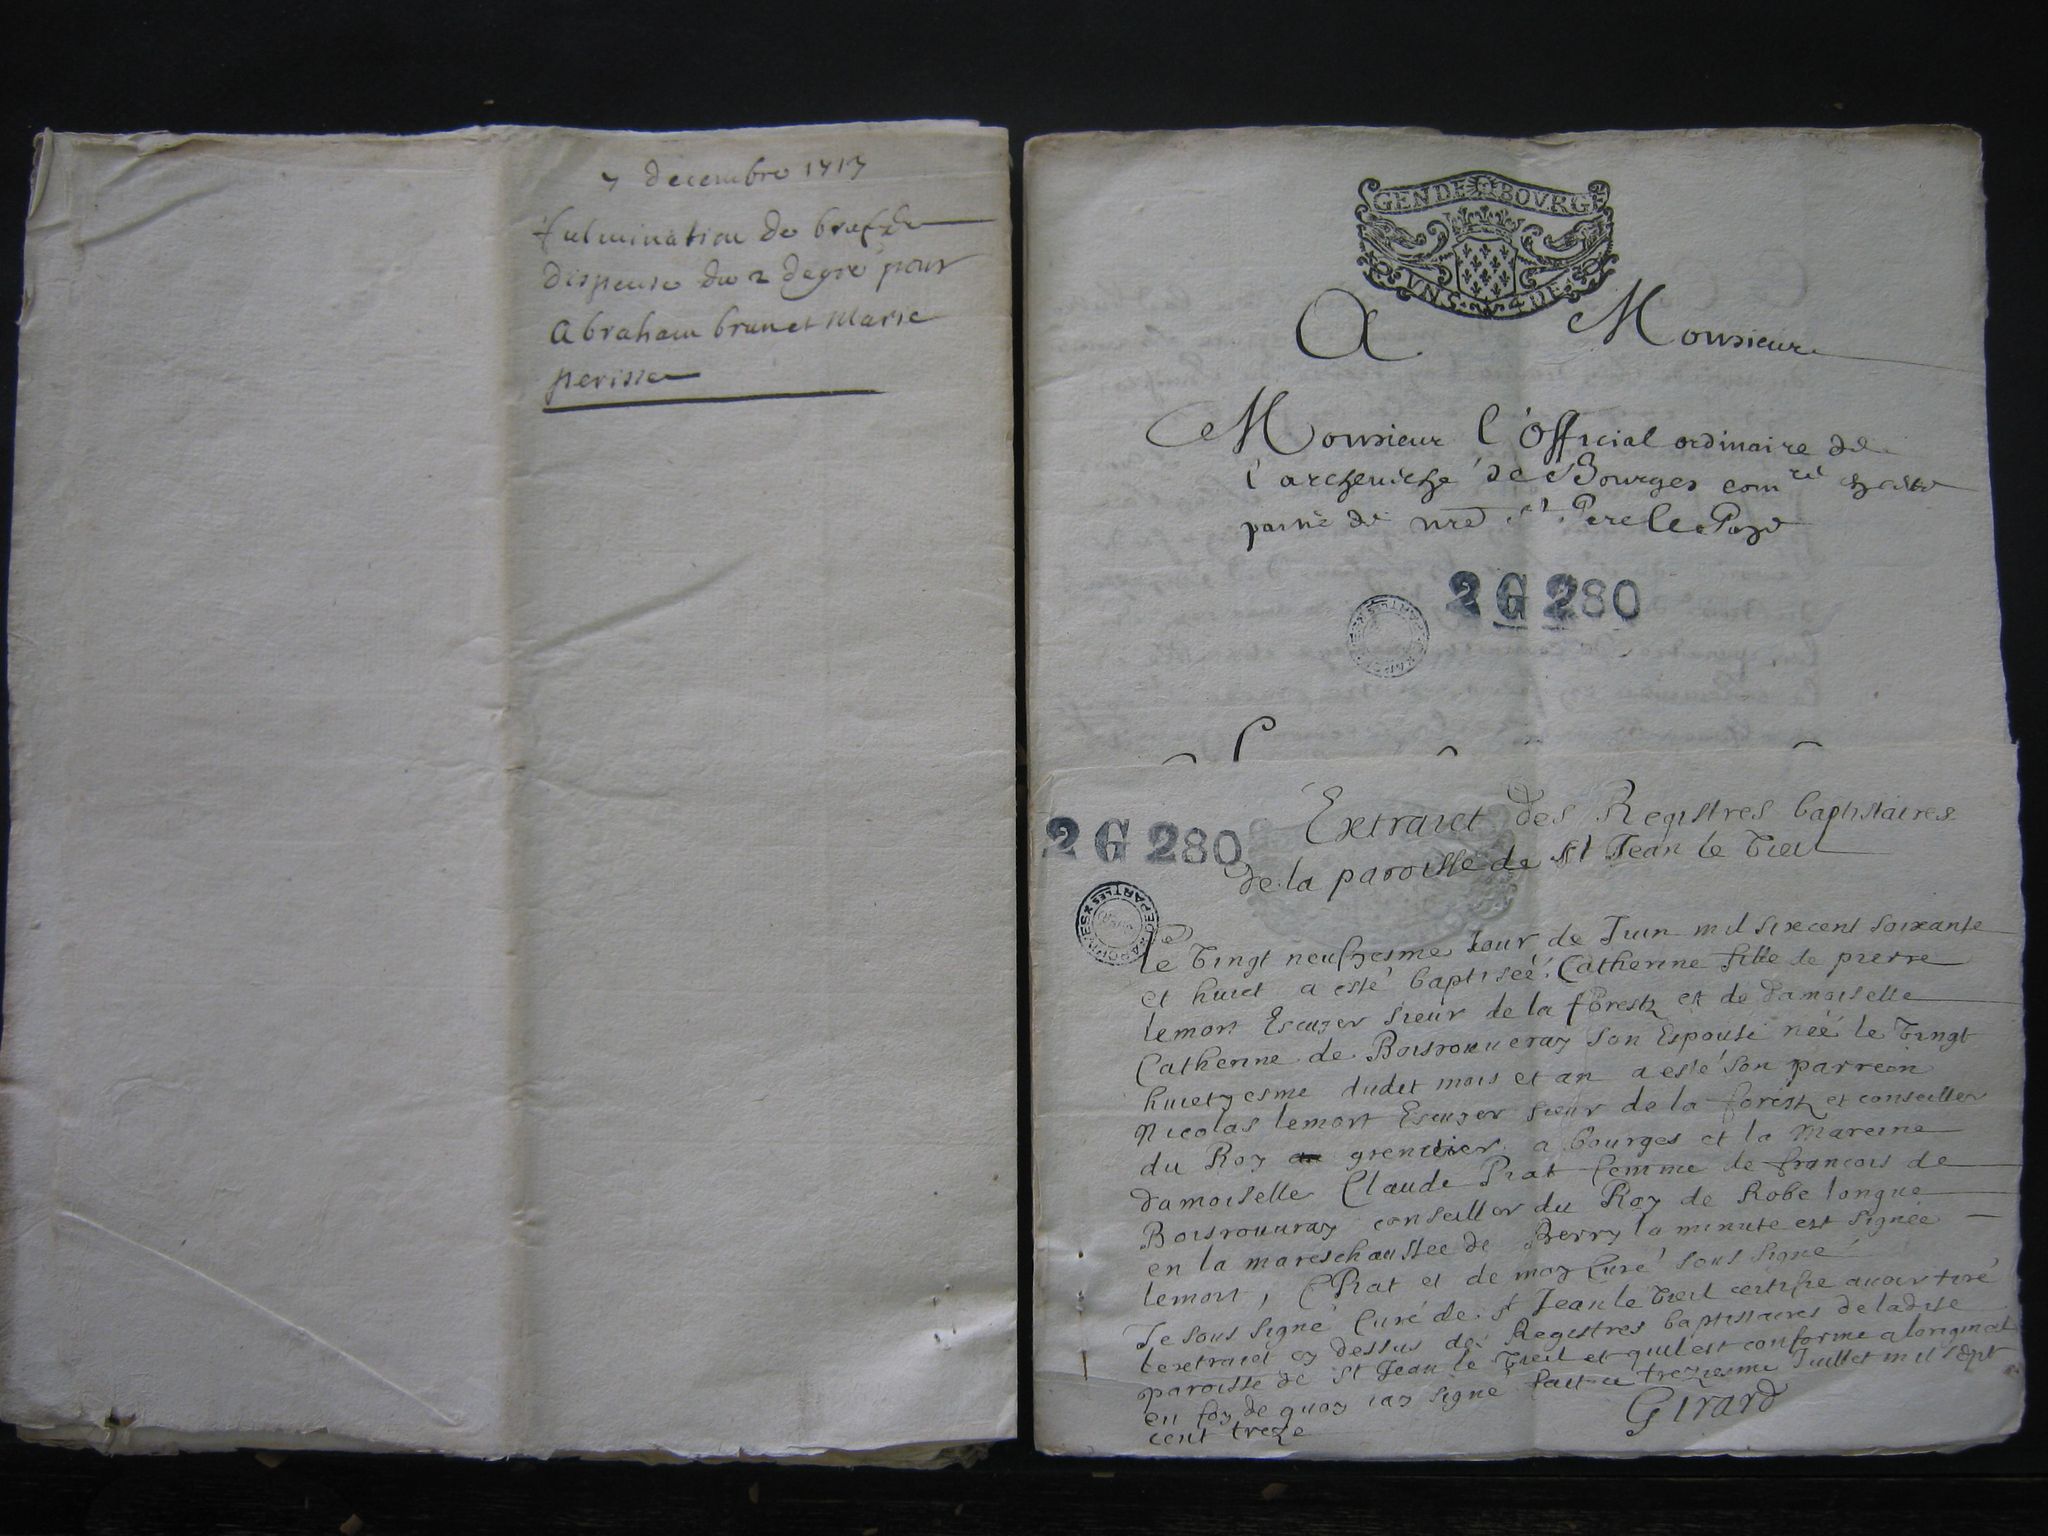 7 decembre 1717
fulmination de bref de
dispense du 2 degré pour
Abraham brun et Marie
perisse
GEN DE BOVRGE
VNS 4 DE
A Monsieur
Monsieur l'Official ordinaire de
l'archeuesche de Bourges com.re en cette
partie de nre St. Pere le Pape
2 G 280
Extraict des Registres baptistaires
de la paroisse de St Jean le Vieil
2 G 280
le Vingt neufyesme Jour de Juin mil sixcent soixante
et huict a esté baptiseé Catherine fille de pierre
lemort Escuyer sieur de la forest et de damoiselle
Catherine de Boisrouueray son Espouse neé le Vingt
huictyesme dudit mois et an a esté son parrein
Nicolas lemort Escuyer sieur de la forest et conseiller
du Roy grenetier a bourges et la Mareine
damoiselle Claude Prat femme de francois de
Boisrouuray conseiller du Roy de Robe longue
en la mareschaussee de Berry la minute est signee
lemort, C Prat et de moy Curé sous signé
Je sous signé Curé de St Jean le Vieil certifie auoir tiré
lextraict cy dessus des Registres baptistaires de ladite
paroisse de St Jean le Vieil et quil est conforme a loriginal
en foy de quoy iay signé fait ce treziesme Juillet mil sept
cent treze
Girard